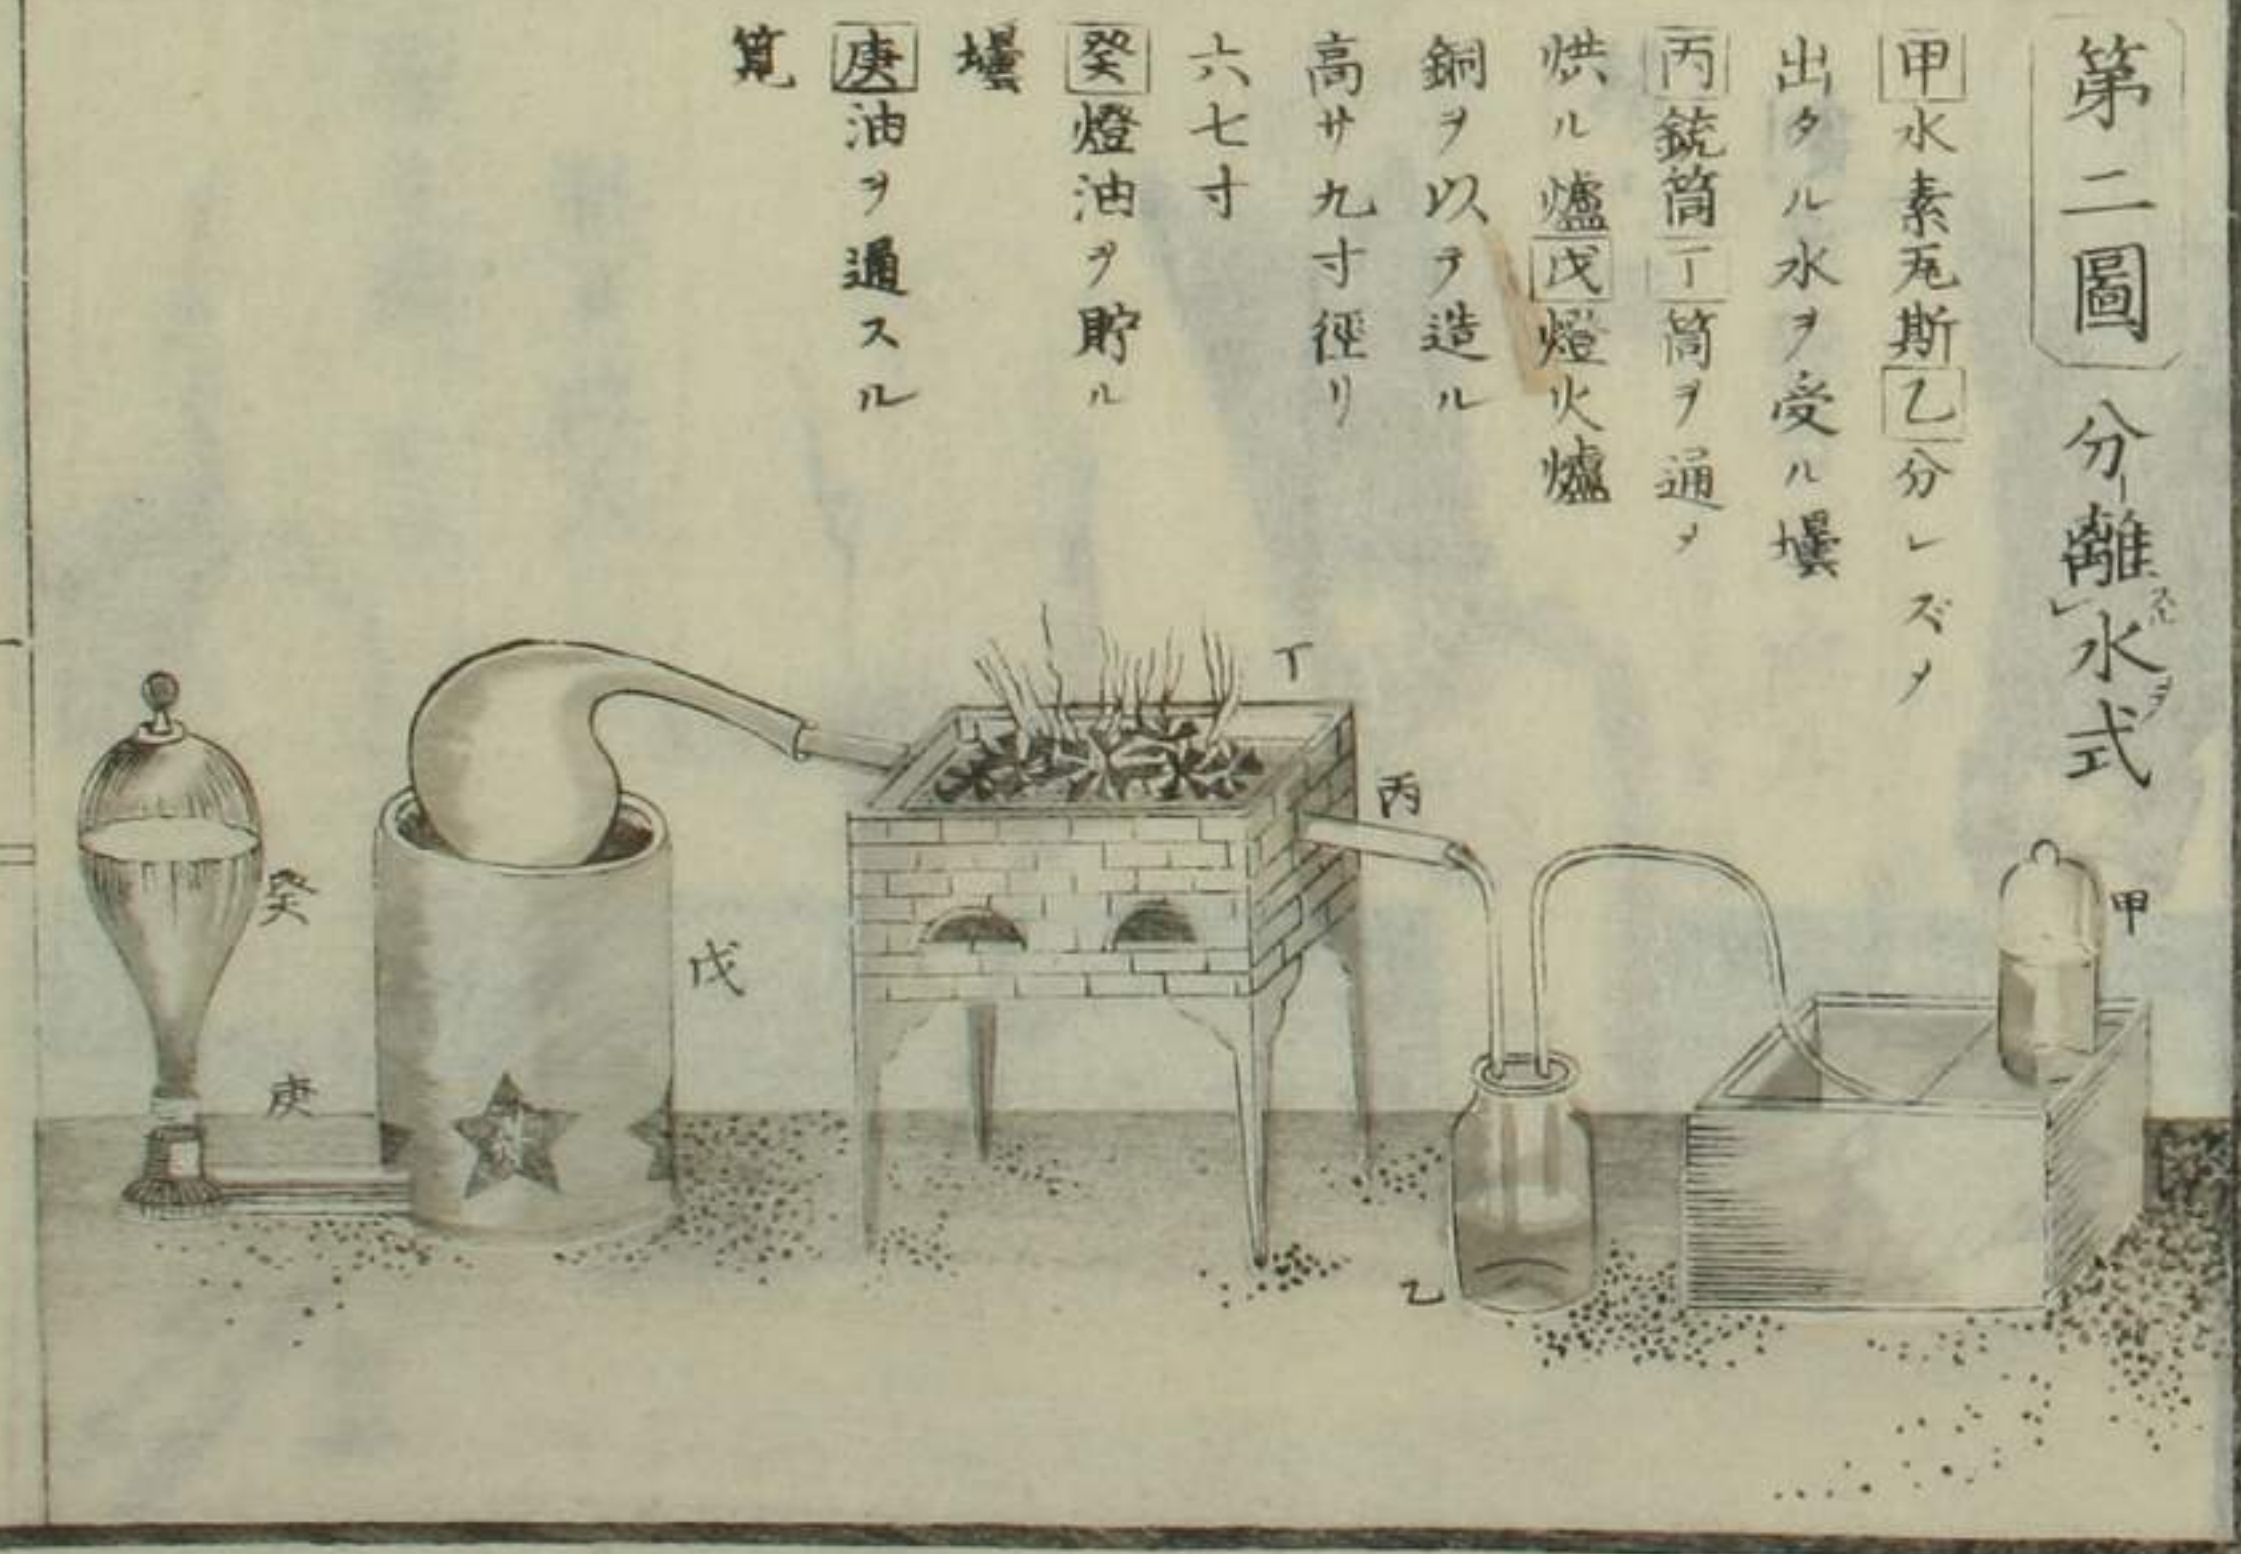 第二圖 分離スル水ヲ式
甲水素瓦斯乙分レズメ
出タル水ヲ受ル壜
丙銃筒丁筒ヲ通メ
烘ル爐戊燈火爐
銅ヲ以テ造ル
高サ九寸徑リ
六七寸
癸燈油ヲ貯ル
壜
庚油ヲ通スル
筧
丁
丙
甲
癸
戊
庚
乙